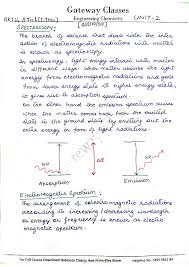 Gateway Classes
AKTU B.Tech [I-Year] Engineering Chemistry UNIT-2
SPECTROSCOPY:
The branch of science that deals with the inter
action of electromagnetic radiations with matter
is known as spectroscopy.
In spectroscopy, light energy interact with matter
in different ways. When matter absorb the light
energy from electromagnetic radiations and goes
from lower energy state to higher energy state,
it gives rise to absorption spectrum.
On the other hand the emission spectrum arises
when the matter comes back from the excited
state to the ground state by emitting out the
extra energy in form of light radiations.
hν
hν
Absorption
Emission
Electromagnetic Spectrum:
The arrangement of electromagnetic radiations
according to increasing / decreasing wavelength
or energy or frequency is known as electro
magnetic spectrum.
For Full Course Download Gateway Classes App From Play Store
Helpline No.